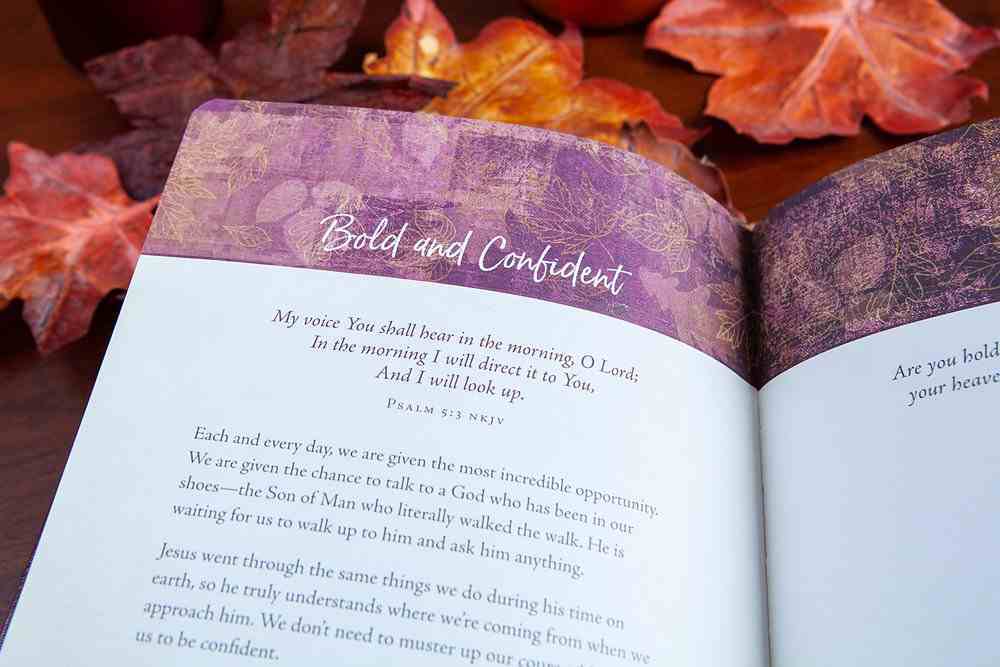 Bold and Confident
My voice You shall hear in the morning, O Lord;
In the morning I will direct it to You,
And I will look up.
Psalm 5:3 NKJV
Each and every day, we are given the most incredible opportunity.
We are given the chance to talk to a God who has been in our
shoes—the Son of Man who literally walked the walk. He is
waiting for us to walk up to him and ask him anything.
Jesus went through the same things we do during his time on
earth, so he truly understands where we're coming from when we
approach him. We don't need to muster up our
us to be confident.
Are you hold
your heave